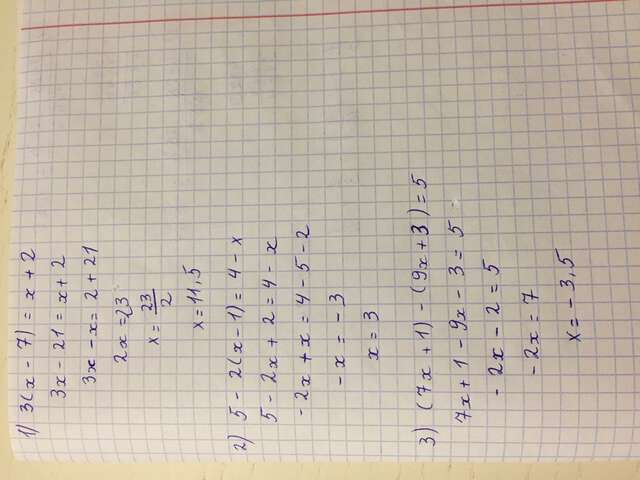 1) 3(x - 7) = x + 2
3x - 21 = x + 2
3x - x = 2 + 21
2x = 23
x = 23/2
x = 11,5
2) 5 - 2(x - 1) = 4 - x
5 - 2x + 2 = 4 - x
-2x + x = 4 - 5 - 2
-x = -3
x = 3
3) (7x + 1) - (9x + 3) = 5
7x + 1 - 9x - 3 = 5
-2x - 2 = 5
-2x = 7
x = -3,5